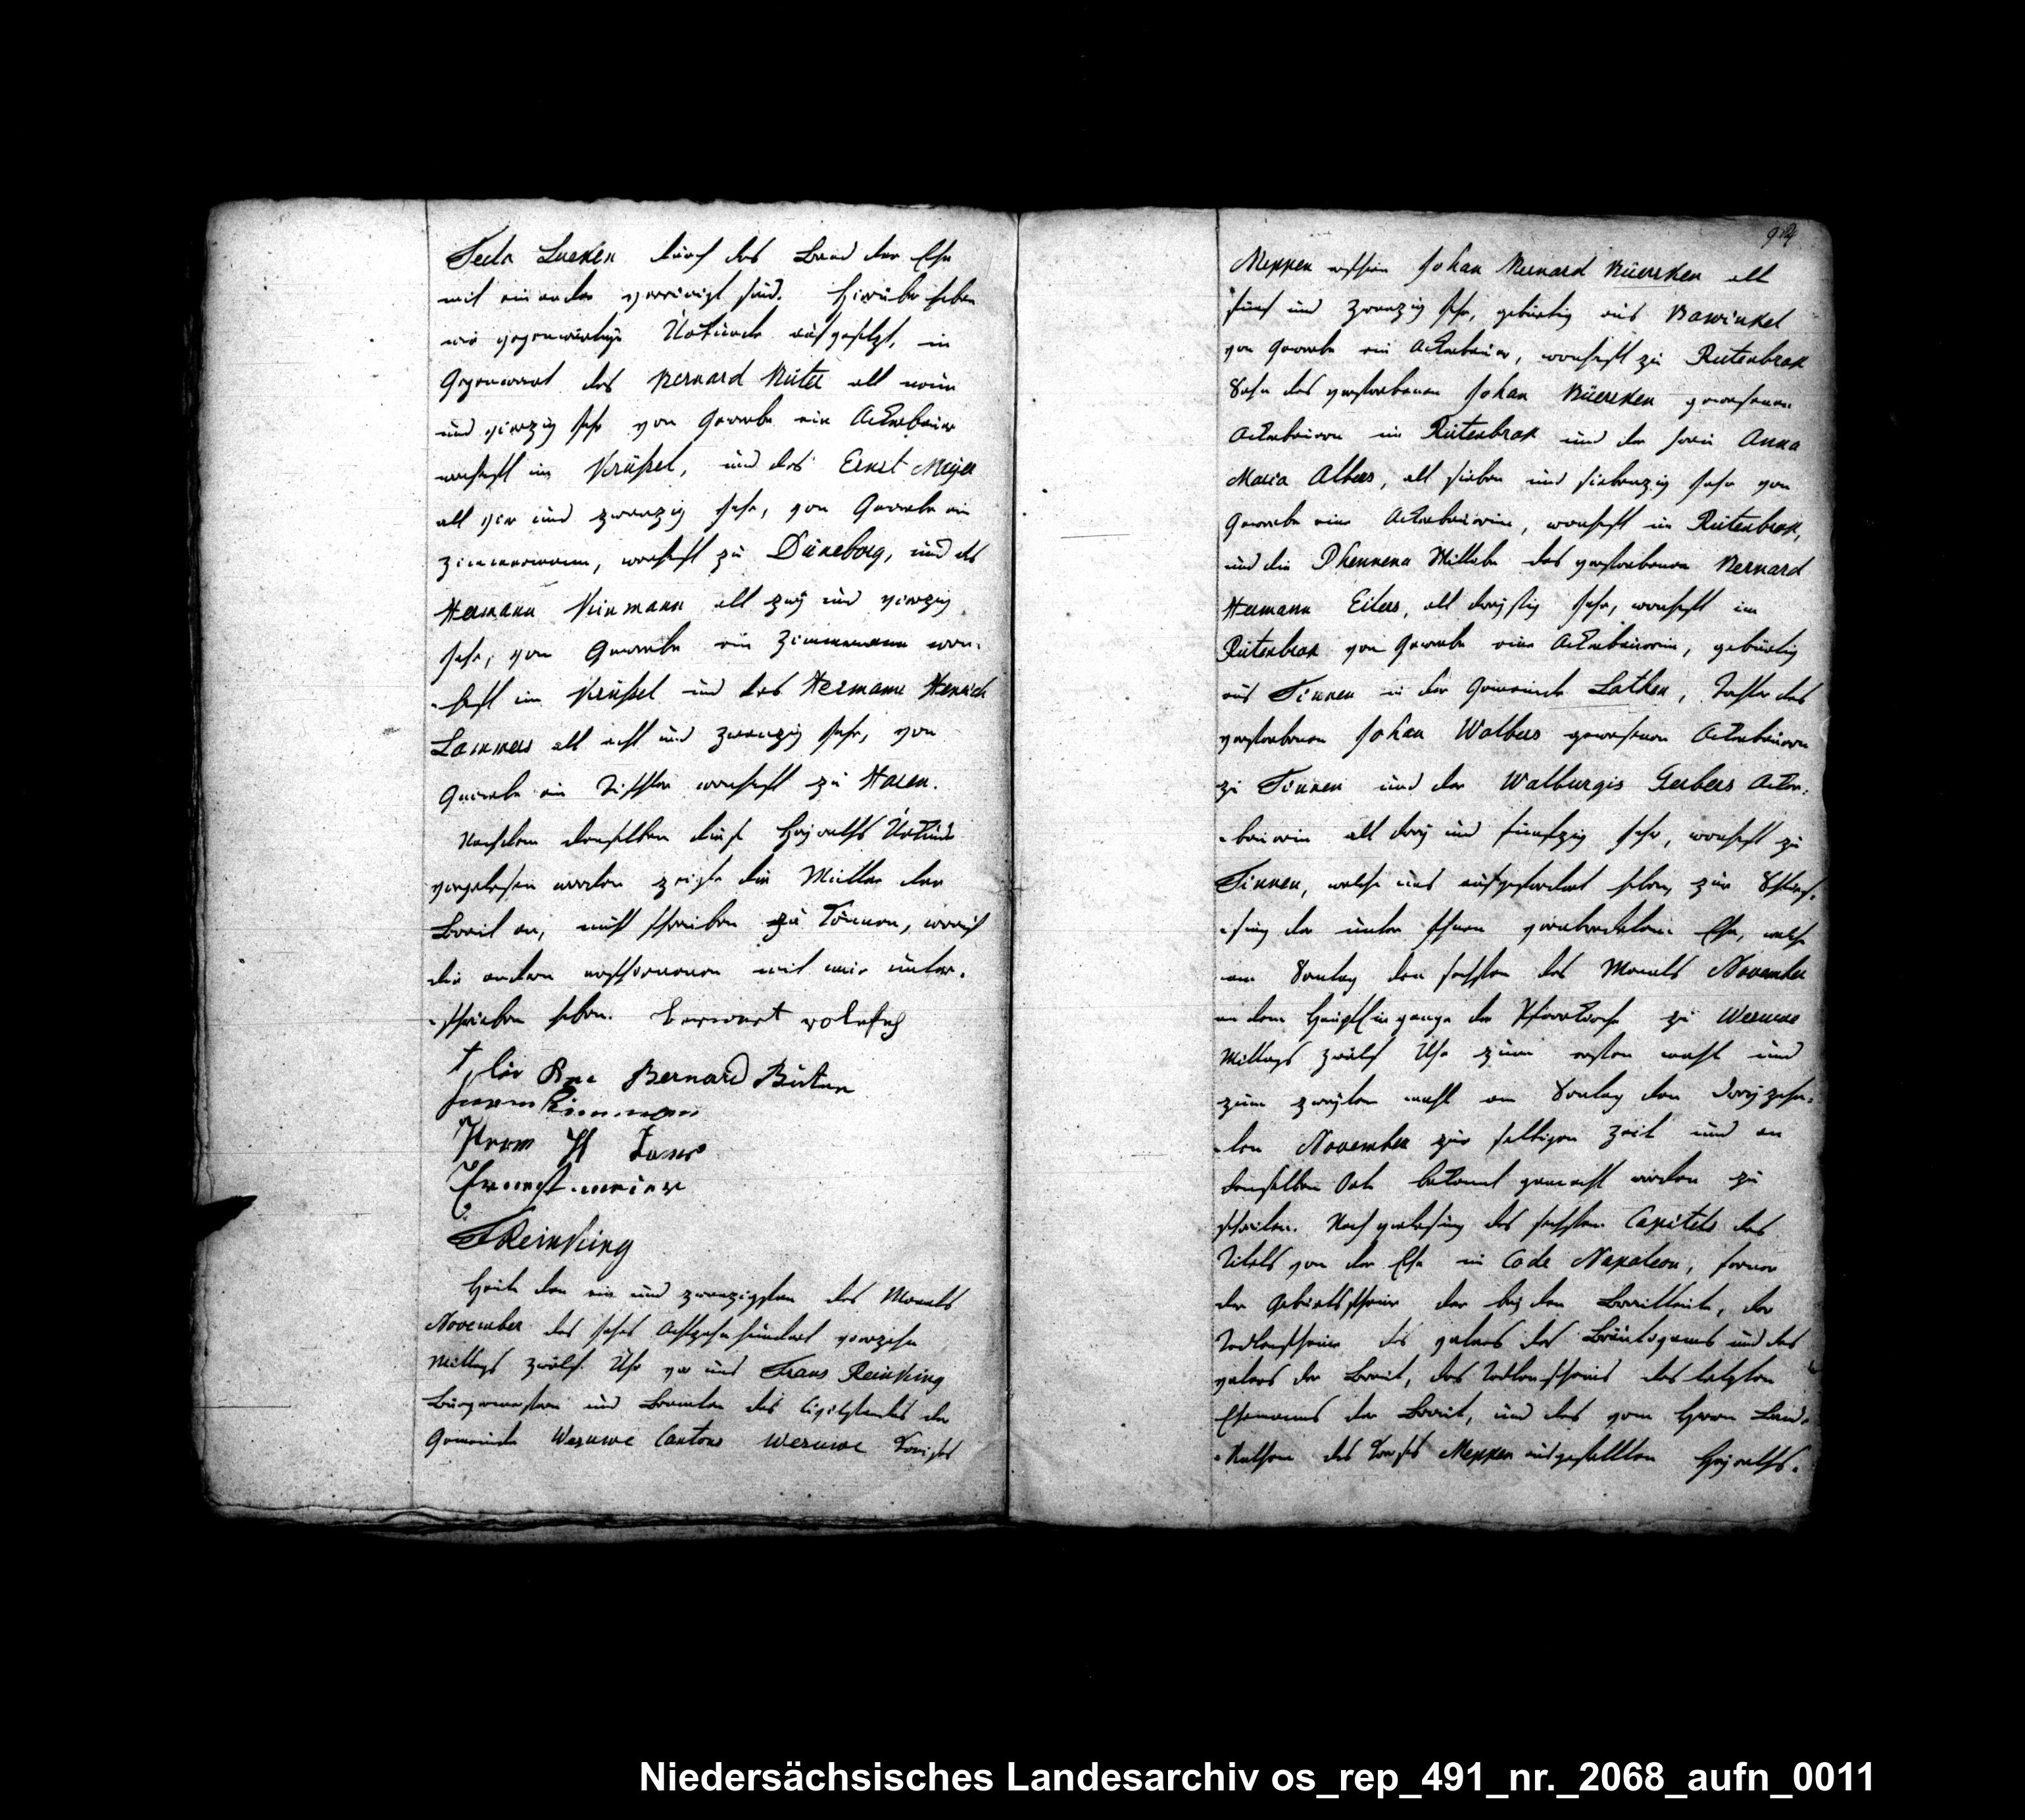 Tecla Lueken durch das Band der Ehe
mit einander vereinigt sind. Hierüber haben
wir gegenwärtige Urkunde aufgesetzt, in
Gegenwart des Bernard Rüter alt neun
und vierzig Jahr von Gewerbe ein Ackerbauer
wohnhaft im Krüssel, und des Ernst Meyer
alt vier und zwanzig Jahr, von Gewerbe ein
Zimmermann, wohnhaft zu Düneborg, und des
Hermann alt zwey und vierzig
Jahr, von Gewerbe ein Zimmermann won-
-haft im Krüssel und des Hermann Henrich
Lammers alt acht und zwanzig Jahr, von
Gewerbe ein Tischler wonhaft zu Haren.
Nachdem denselben diese Heyraths Urkunde
vorgelesen worden zeigte die Mutter der
Braut an, nicht schreiben zu können, worauf
die andern erschienenen mit mir unter-
-schrieben haben.
Bernard Rüter
Herm H
Ernest meier
FReinking
Heute den ein und zwanzigsten des Monats
November des Jahrs Achtzehnhundert vierzehn
Mittags zwölf Uhr vor uns Frans Reinking
Bürgermeistern und Beamten des Civilstandes der
Gemeinde Wesuwe Cantons Wesuwe Kreises
Meppen erschien Johan Bernard Büerzken alt
fünf und zwanzig Jahr, gebürtig aus Bawinkel
von Gewerbe ein Ackerbauer, wonhaft zu Rütenbrok
Sohn des verstorbenen Johan Büerzken gewesenen
Ackerbauern im Rütenbrok und der Frau Anna
Maria Albers, alt sieben und siebenzig Jahr von
Gewerbe eine Ackerbäuerin, wonhaft im Rütenbrok,
und die Dhennena Wittwe des verstorbenen Bernard
Hermann Eilers, alt dreyssig Jahr, wonhaft im
Rütenbrok von Gewerbe eine Ackerbäuerin, gebürtig
aus Tinnen in der Gemeinde Lathen, Tochter des
verstorbenen Johan Wolbers gewesenen Ackerbauern
zu Tinnen und der Walburgis Gerbers Acker-
-bäuerin alt drey und fünfzig Jahr, wonhaft zu
Tinnen, welche uns aufgefordert haben, zur Schlies-
-sung der unter ihnen verabredeten Ehe, welche
am Sontag den sechsten des Monats November
an dem Haupteingange der Pfarrkirche zu Wesuwe
Mittags zwölf Uhr zum ersten mahl und
zum zweyten mahl am Sontag den dreyzehn-
-ten November zur selbigen Zeit und an
demselben Orte bekannt gemacht worden zu
schreiten. Nach verlesung des sechsten Capitels des
Titels von der Ehe im Code Napoleon, ferner
der Geburtsscheine der beyden Brautleute, der
Todtenscheine des vaters des Bräutigams und des
vaters der Braut, des Todtenscheins des letzten
Ehemanns der Braut, und des vom Herrn Land-
-rathen des Kreises Meppen ausgestellten Heyraths-
Niedersächsisches Landesarchiv os_rep_491_nr._2068_aufn_0011